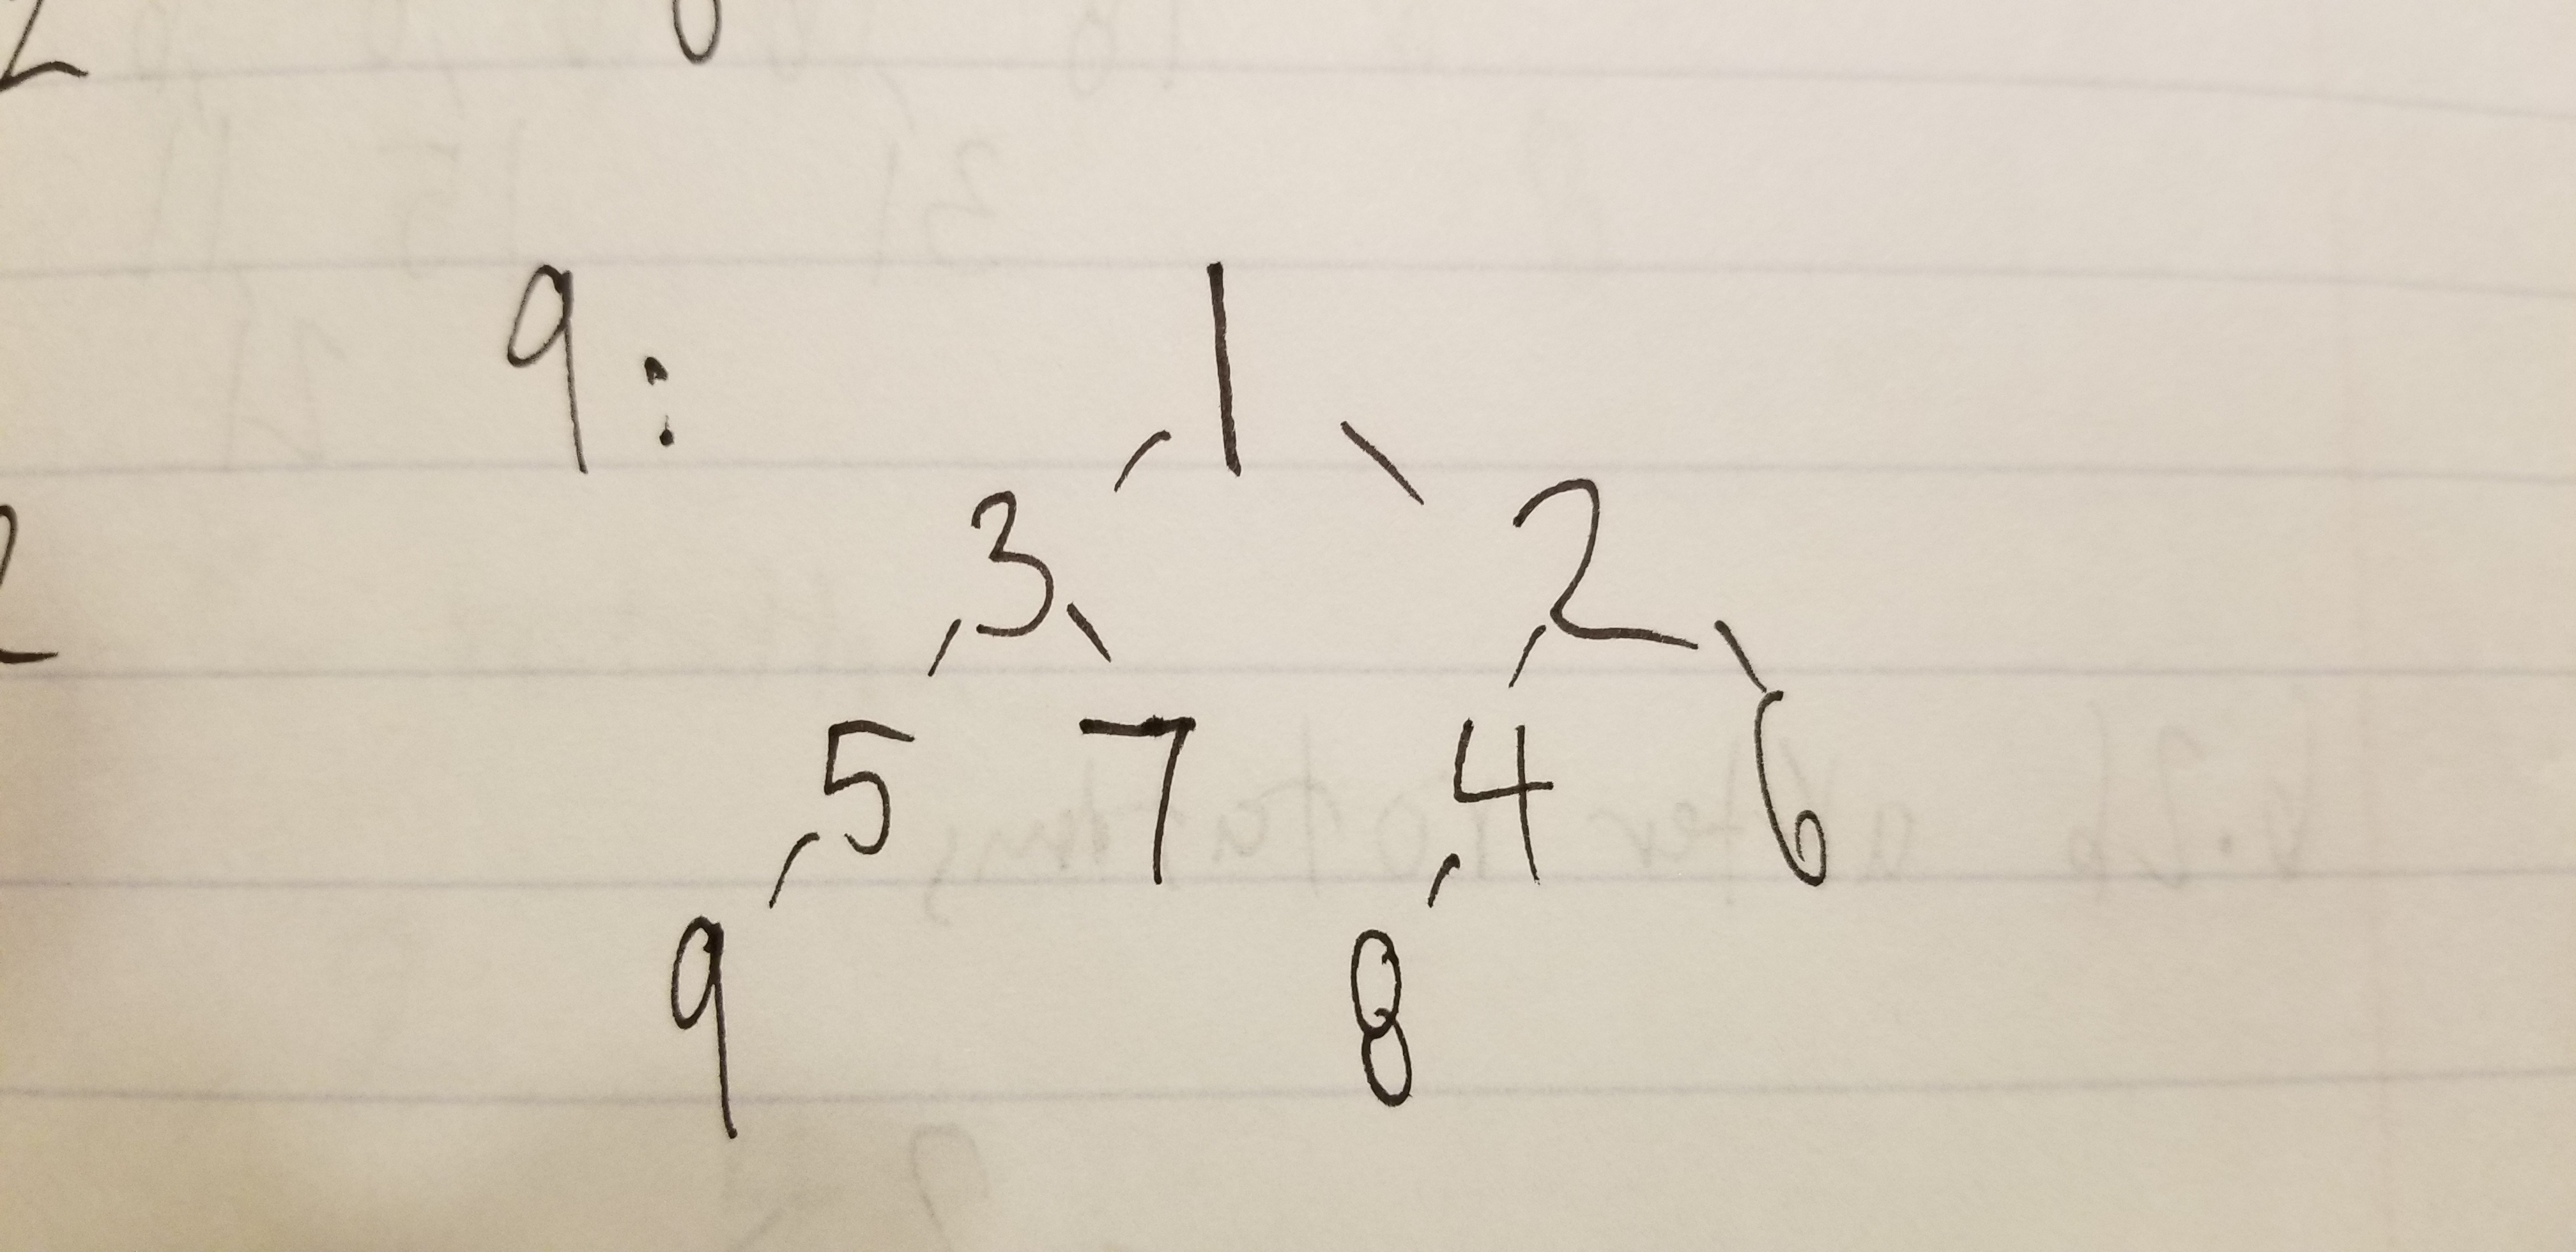 2
9: 1
3 2
5 7 4 6
9 8
2